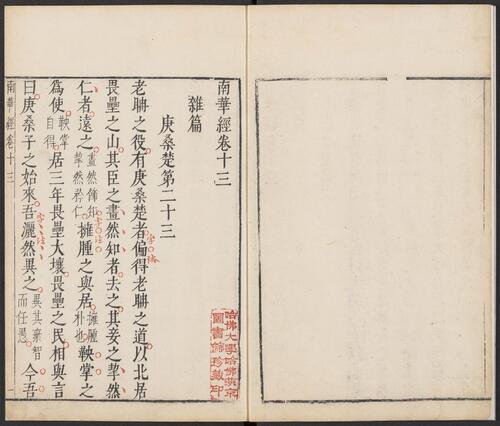 南華經卷十三
雜篇
庚桑楚第二十三
老聃之役有庚桑楚者偏得老聃之道以北居
畏壘之山其臣之畫然知者去之其妾之挈然
仁者遠之畫然飾知挈然矜仁擁腫之與居擁腫朴也鞅掌之
為使鞅掌自得居三年畏壘大壤畏壘之民相與言
曰庚桑子之始來吾灑然異之異其棄智而任愚今吾
南華經卷十三
一
哈佛大學哈佛燕京
圖書館珍藏印